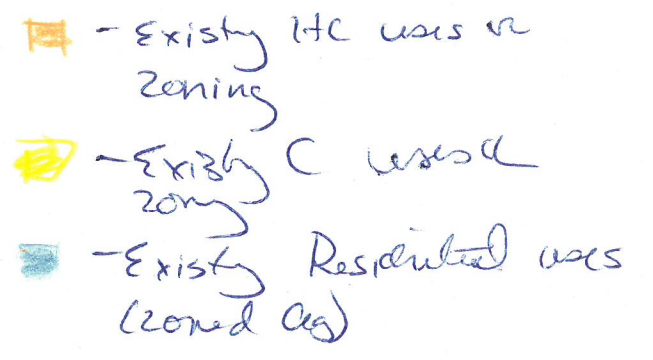 - Existing HC uses or
zoning
- Existing C uses or
zoning
- Existing Residential uses
(zoned Ag)